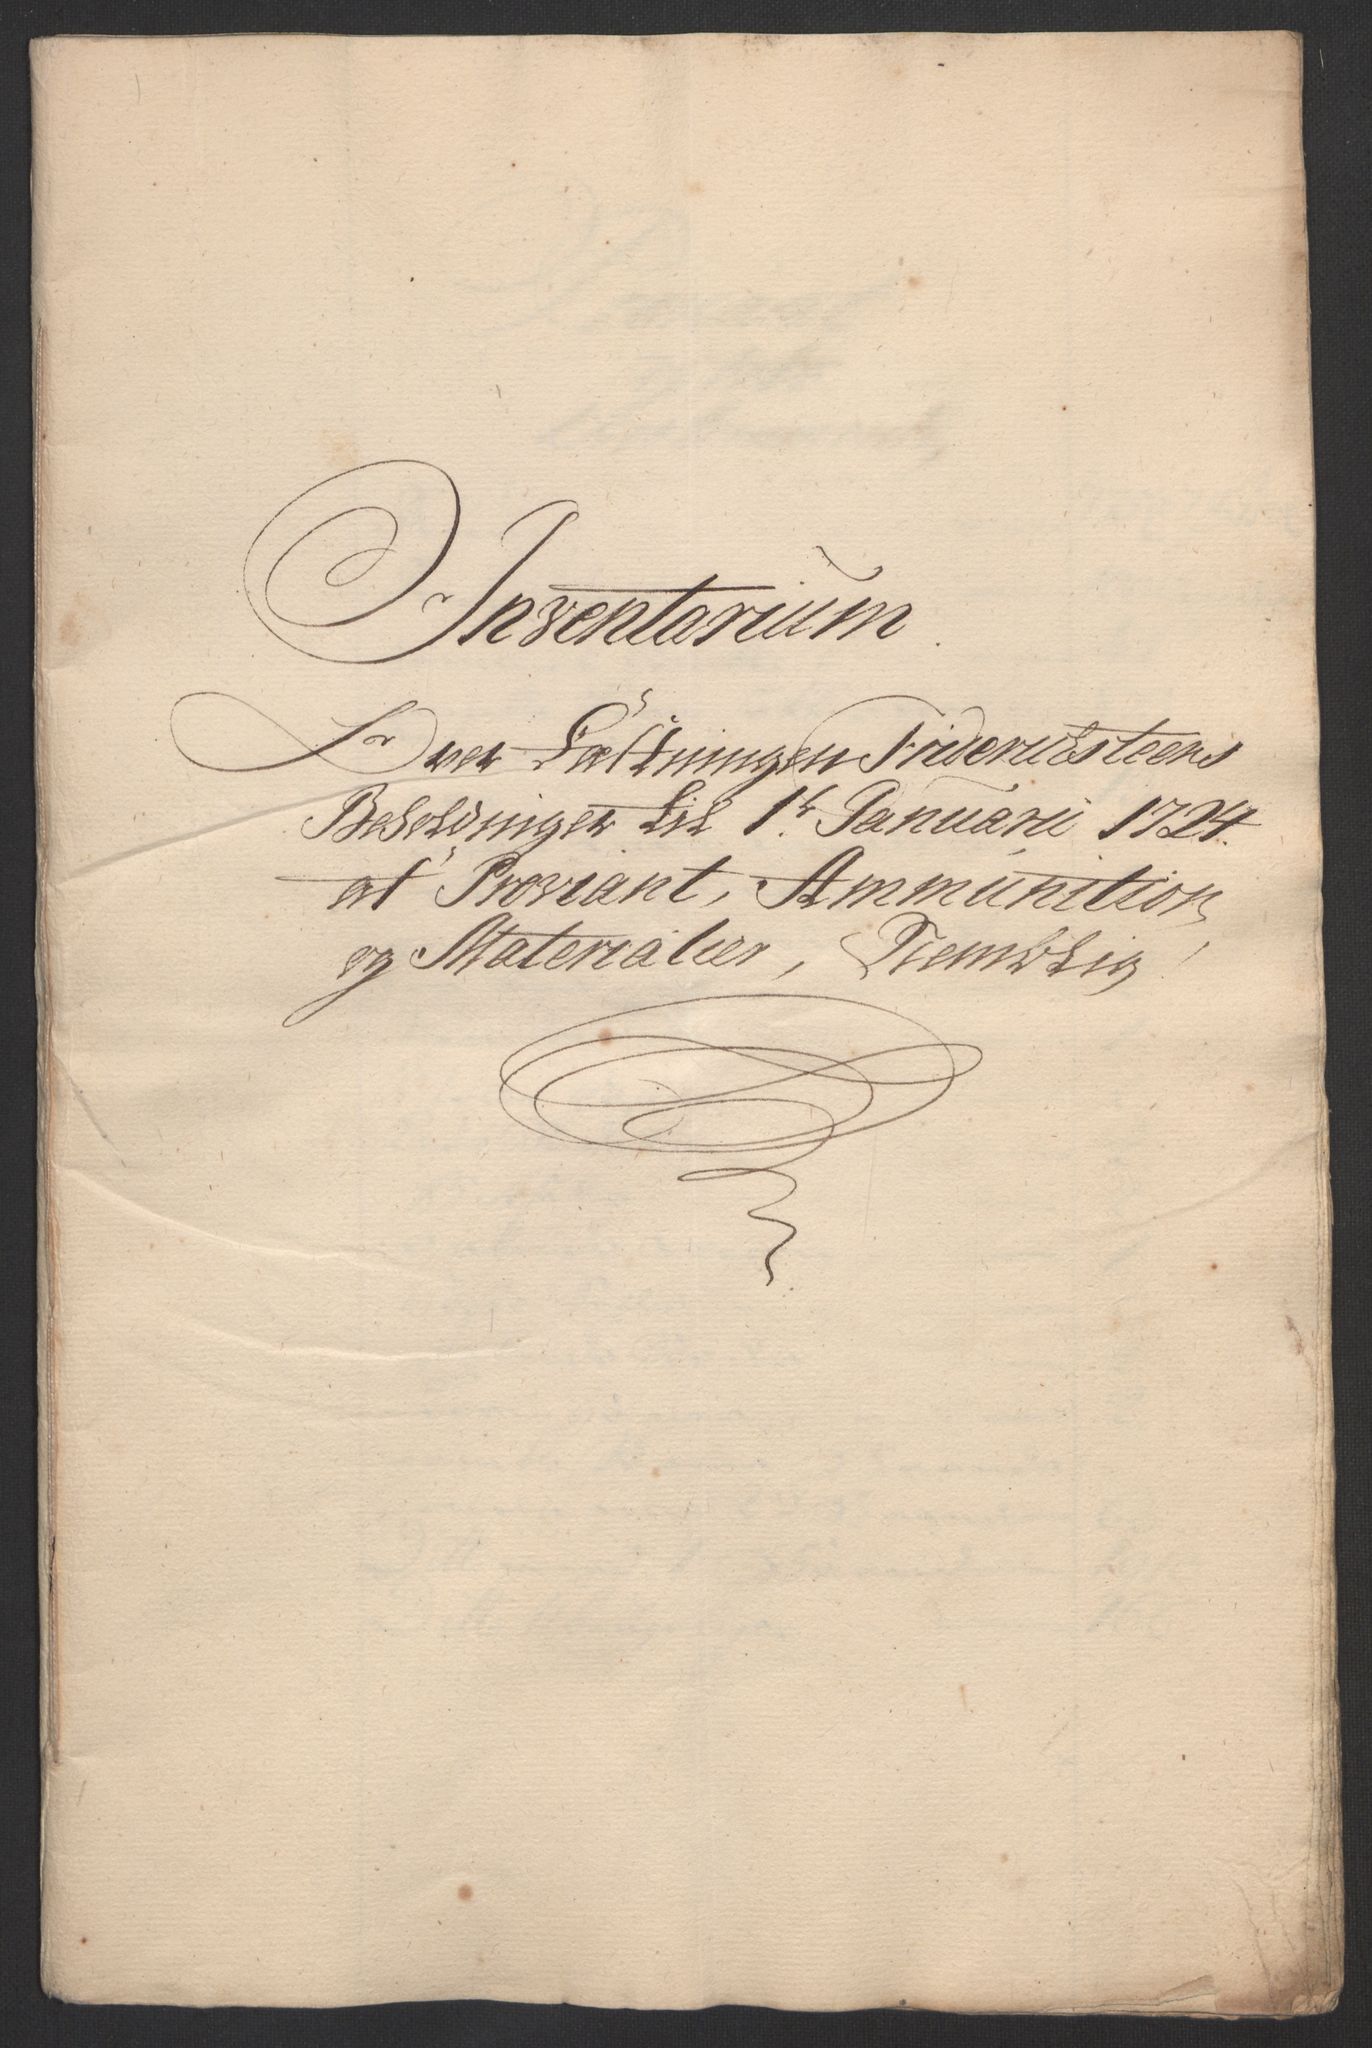 Inventarium
Over Fæstningen Fridericksteens
Beholdninger til 1t Januarii 1724
af Proviant, Ammunition
og Materialier, Nemblig